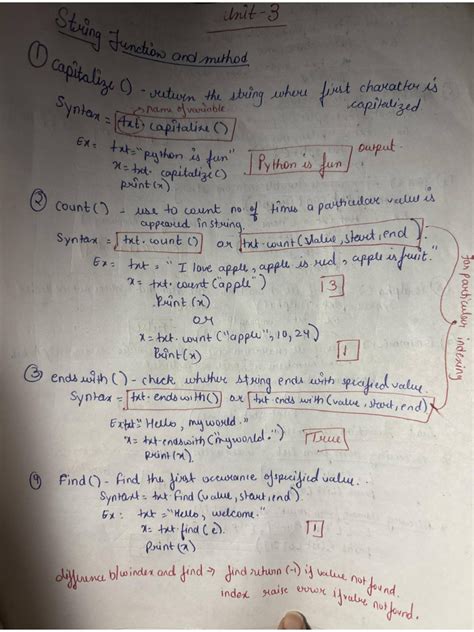 Unit-3
String Function and method
① Capitalize() - return the string where first charatter is
capitalized
name of variable
Syntax = txt.capitalize()
Ex: txt="python is fun"
x=txt.capitalize()
print(x)
output
Python is fun
② Count() - use to count no of times a particular value is
appeared in string.
Syntax = txt.count() or txt.count(value, start, end).
for particular indexing
Ex: txt = "I love apple, apple is red, apple is fruit."
x = txt.count("apple")
Print(x)
3
or
x=txt.count("apple", 10, 24)
Print(x)
1
③ ends with() - check whether string ends with specified value.
Syntax = txt.endswith() or txt.ends with(value, start, end)
Ex txt="Hello, my world."
x= txt.endswith("my world.")
Print(x).
True
④ Find() - Find the first occurance of specified value.
Syntaxt = txt.find(value, start, end)
Ex: txt = "Hello, welcome."
x= txt.find(e).
Print(x)
1
difference b/w index and find → find return (-1) if value not found.
index raise error if value not found.